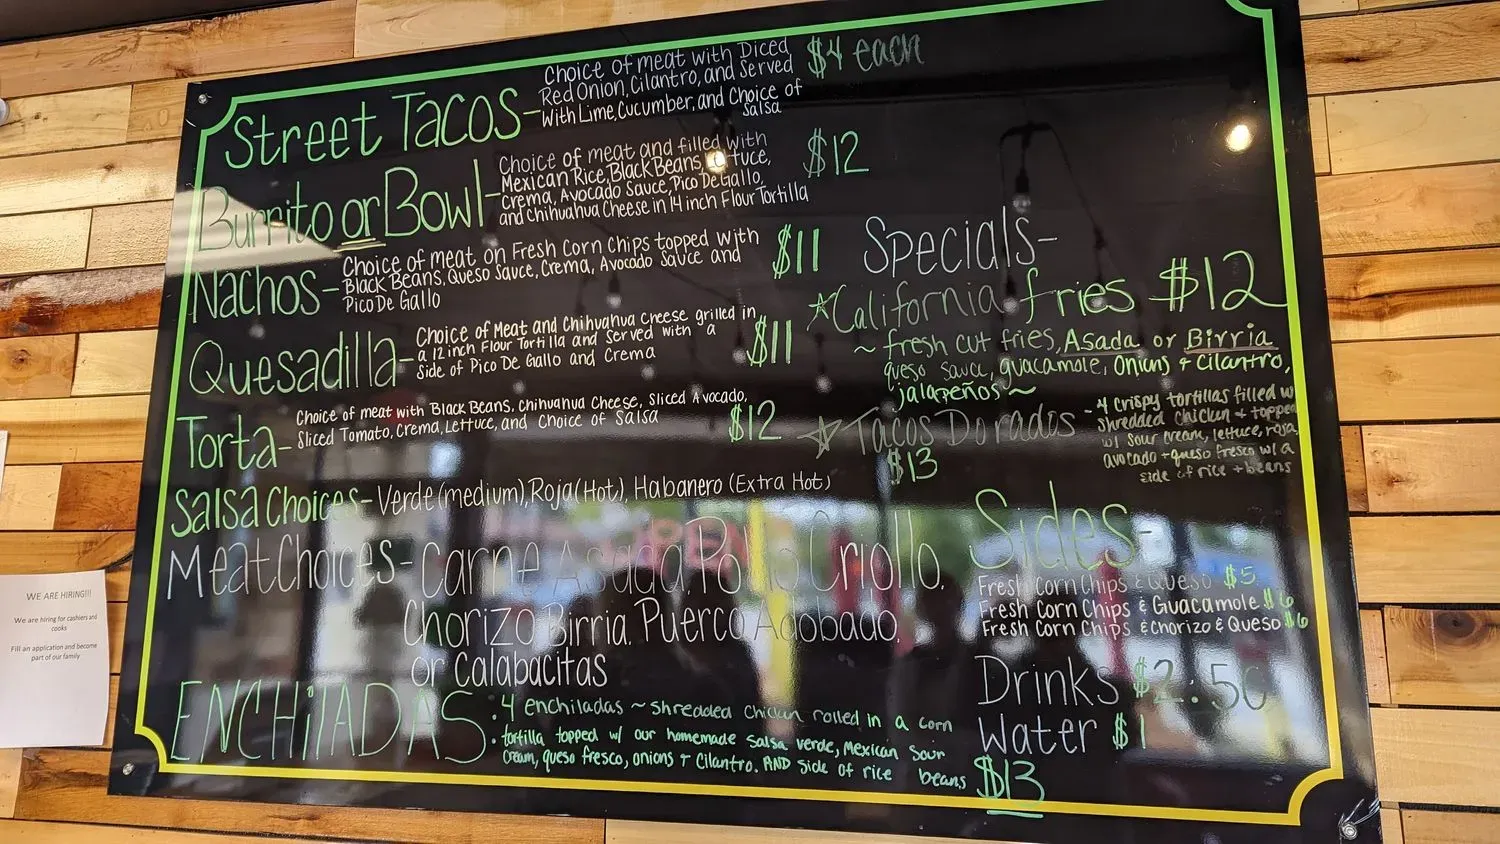 Street Tacos-
Choice of meat with Diced
Red Onion, Cilantro, and Served
With Lime, Cucumber, and Choice of
Salsa
$4 each
Burrito or Bowl-
Choice of meat and filled with
Mexican Rice, Black Beans, Lettuce,
Crema, Avocado Sauce, Pico De Gallo,
and Chihuahua Cheese in 14 inch Flour Tortilla
$12
Nachos-
Choice of meat on Fresh Corn Chips topped with
Black Beans, Queso Sauce, Crema, Avocado Sauce and
Pico De Gallo
$11
Quesadilla-
Choice of Meat and Chihuahua Cheese grilled in
a 12 inch Flour Tortilla and Served with a
Side of Pico De Gallo and Crema
$11
Torta-
Choice of meat with Black Beans, Chihuahua Cheese, Sliced Avocado,
Sliced Tomato, Crema, Lettuce, and Choice of Salsa
$12
Salsa Choices- Verde (medium), Roja (Hot), Habanero (Extra Hot)
Meat Choices- Carne Asada, Pollo Criollo,
Chorizo, Birria, Puerco Adobado,
or Calabacitas
ENCHiLADAS:
4 enchiladas ~ shredded chicken rolled in a corn
tortilla topped w/ our homemade salsa verde, Mexican sour
cream, queso fresco, onions + cilantro. AND side of rice beans
$13
Specials-
California fries $12
~ fresh cut fries, Asada or Birria
queso sauce, guacamole, onions + cilantro,
jalapeños ~
Tacos Dorados
$13
- 4 crispy tortillas filled w/
shredded chicken + topped
w/ sour cream, lettuce, rosa,
avocado + queso fresco w/ a
side of rice + beans
Sides-
Fresh Corn Chips & Queso $5
Fresh Corn Chips & Guacamole $6
Fresh Corn Chips & Chorizo & Queso $6
Drinks $2.50
Water $1
WE ARE HIRING!!!
We are hiring for cashiers and
cooks
Fill an application and become
part of our family